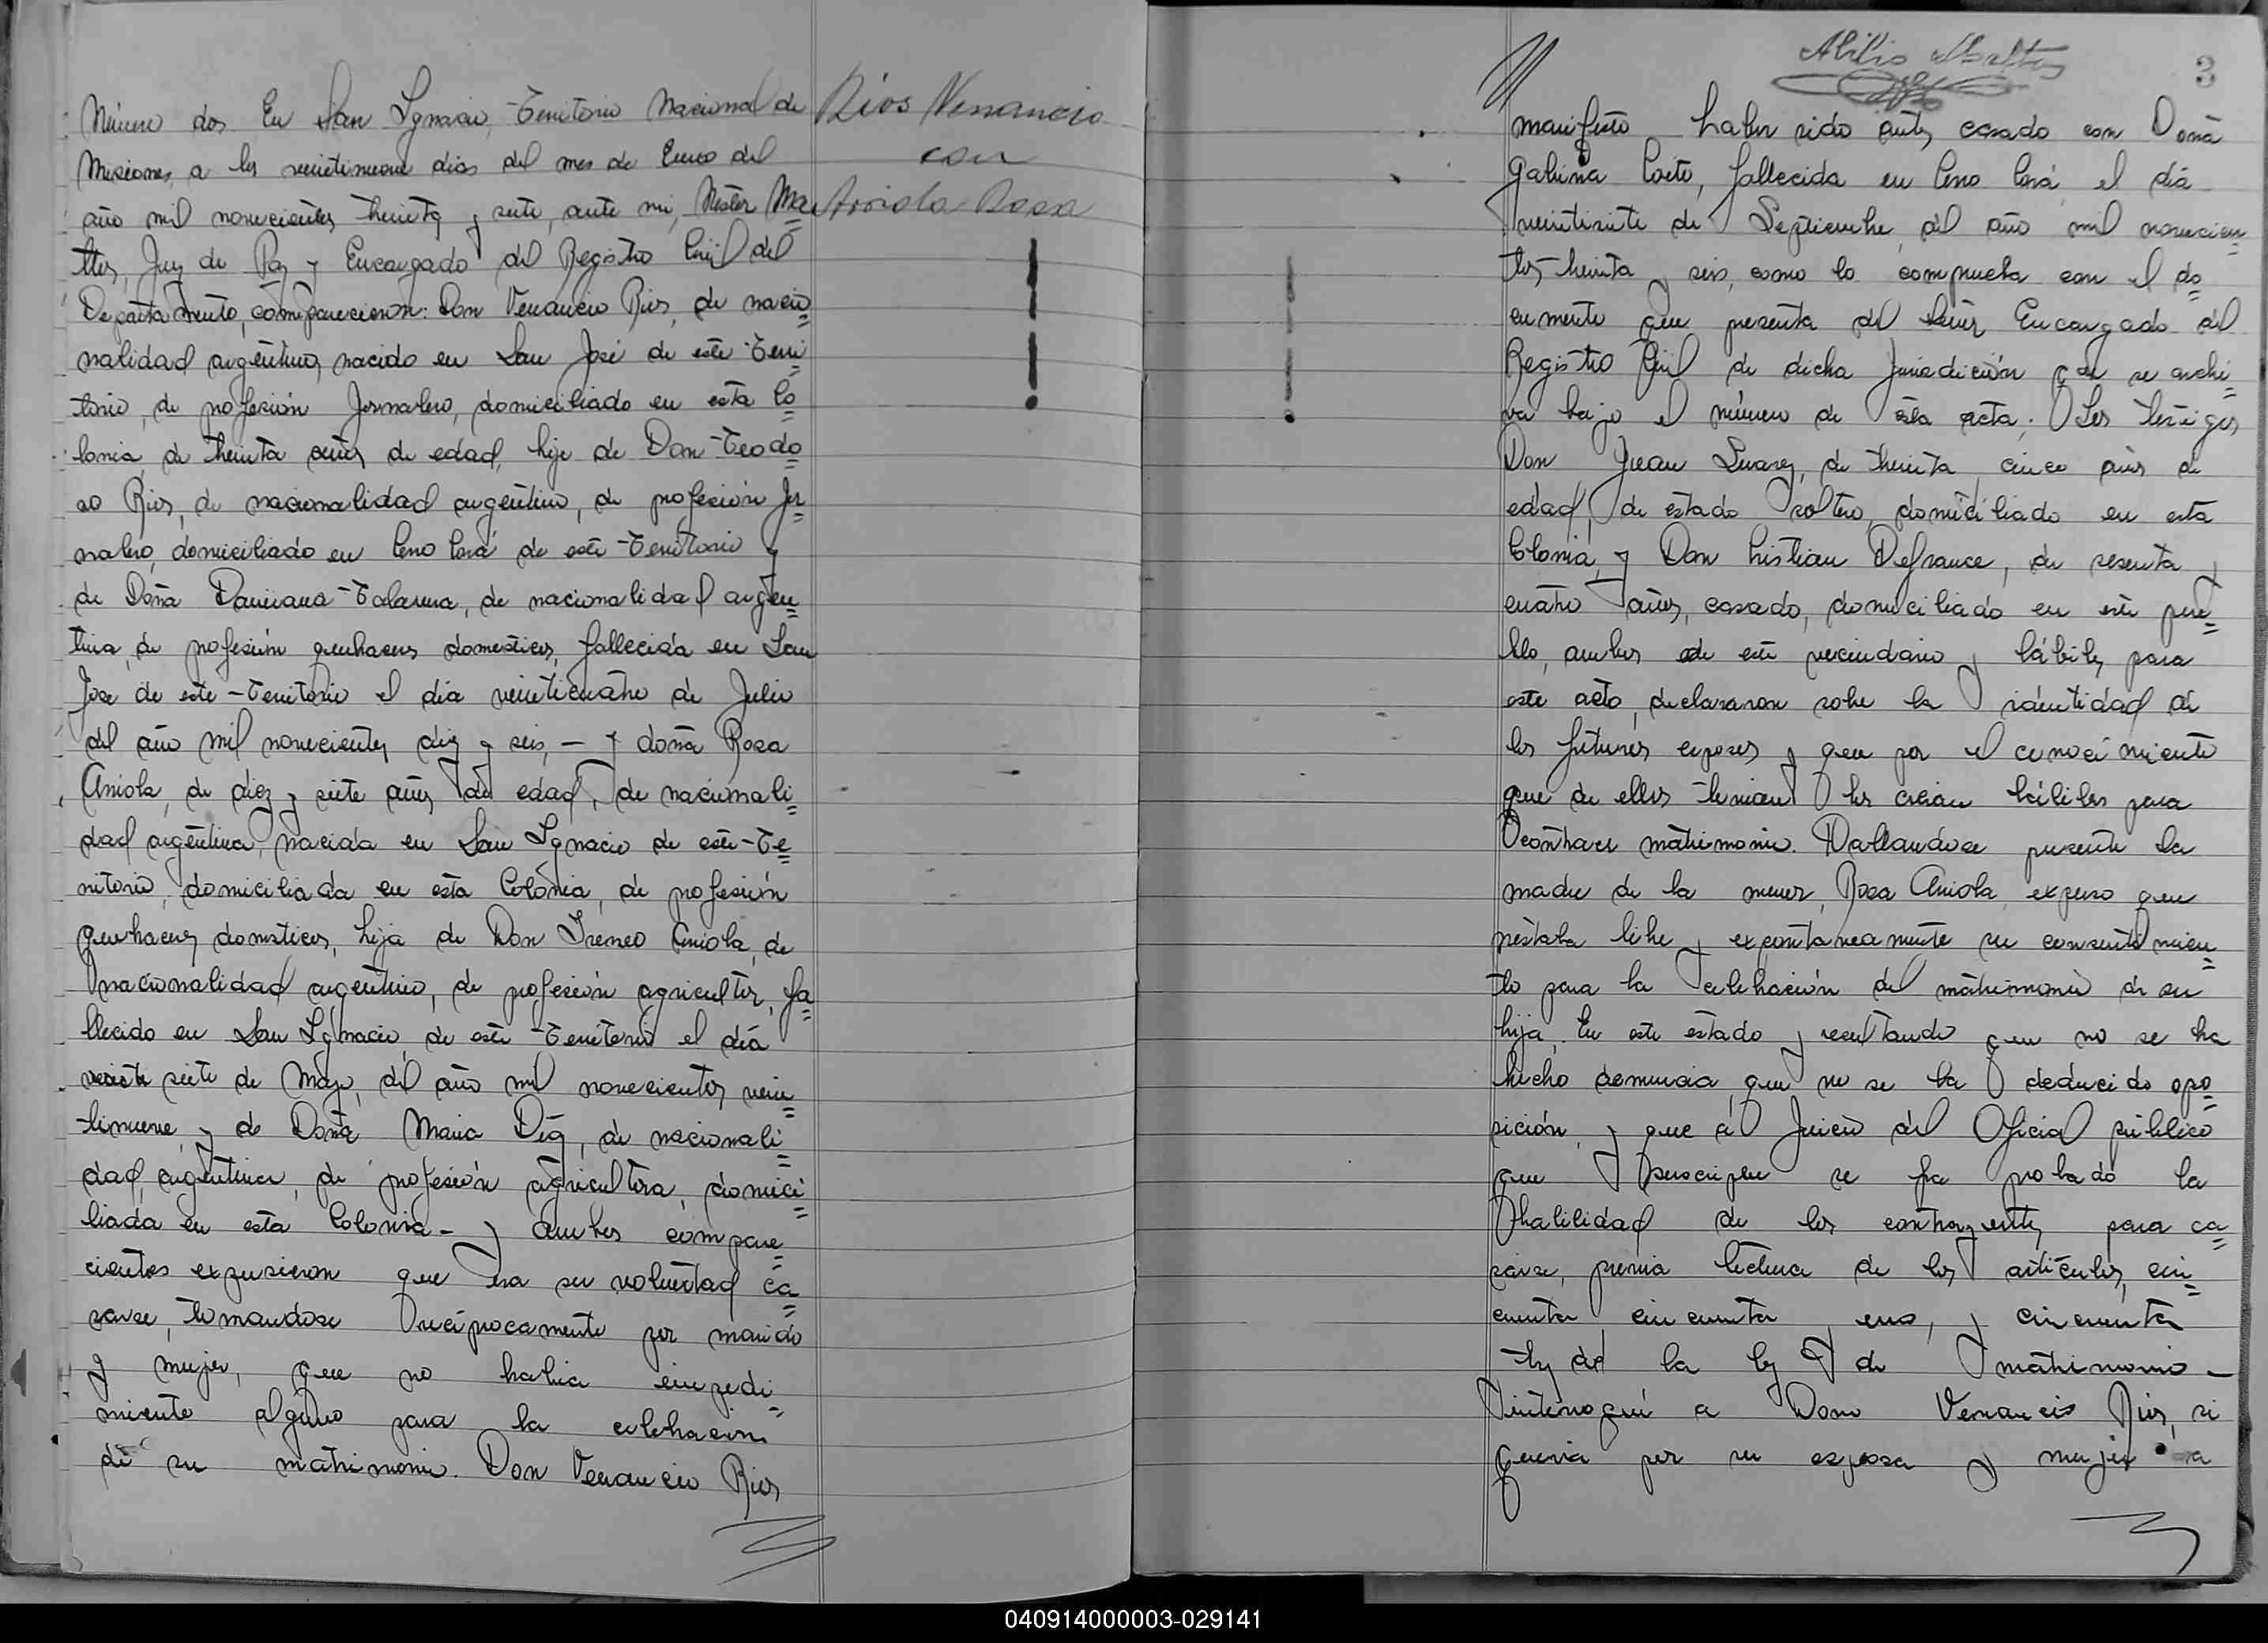 Número dos. En San Ygnacio, Territorio Nacional de
Misiones, a los veintinueve dias del mes de Enero del
año mil novecientos treinta y siete, ante mi, Néstor Mar
ttos, Juez de Paz y Encargado del Registro Civil del
Departamento, comparecieron: Don Venancio Rios, de nacio
nalidad argentino, nacido en San José de este Terri
torio, de profesión Jornalero, domiciliado en esta Co
lonia, de treinta años de edad, hijo de Don Teodo
ro Rios, de nacionalidad argentino, de profesión Jor
nalero, domiciliado en Cerro Corá de este Territorio y
de Doña Damiana Talavera, de nacionalidad argen
tina, de profesión quehaceres domesticos, fallecida en San
Jose de este Territorio el día veinticuatro de Julio
del año mil novecientos diez y seis, — y doña Rosa
Arriola, de diez y siete años de edad, de nacionali
dad argentina, nacida en San Ygnacio de este Te
rritorio, domiciliada en esta Colonia, de profesión
quehaceres domesticos, hija de Don Ireneo Arriola, de
nacionalidad argentino, de profesión agricultor, fa
llecido en San Ygnacio de este Territorio el día
siete de Mayo, del año mil novecientos vein
tinueve y de Doña Maria Diez, de nacionali
dad argentina, de profesión agricultora, domici
liada en esta Colonia — y ambos compare
cientes expusieron que era su voluntad ca
sarse, tomandose reciprocamente por marido
y mujer, que no habia impedi
miento alguno para la celebracion
de su matrimonio. Don Venancio Rios
Rios Venancio
con
Arriola Rosa
3
manifestó haber sido antes casado con Doña
Gabina, fallecida en Cerro Corá el día
veintisiete de Septiembre del año mil novecien
tos treinta y seis, como lo comprueba con el do
cumento que presenta del Señor Encargado del
Registro Civil de dicha Jurisdición que se archi
va bajo el número de esta acta. Los testigos
Don Juan Suarez, de treinta y cinco años de
edad, de estado soltero, domiciliado en esta
Colonia, y Don Cristian Defrance, de sesenta y
cuatro años, casado, domiciliado en este pue
blo, ambos de este vecindario y hábiles para
este acto, declararon sobre la identidad de
los futuros esposos y que por el conocimiento
que de ellos tenian los creian hábiles para
contraer matrimonio. Hallandose presente la
madre de la menor, Rosa Arriola, expuso que
prestaba libre y expontaneamente su consentimien
to para la celebración del matrimonio de su
hija. En este estado y resultando que no se ha
hecho denuncia, que no se ha deducido opo
sición, y que á Juicio del Oficial público
que suscripbe se ha probado la
habilidad de los contrayentes para ca
sarse, previa lectura de los artículos, cin
cuenta cincuenta y uno, y cincuenta
tres de la ley de matrimonio —
interroqué a Don Venancio Rios, si
queria por su esposa y mujer a
040914000003-029141